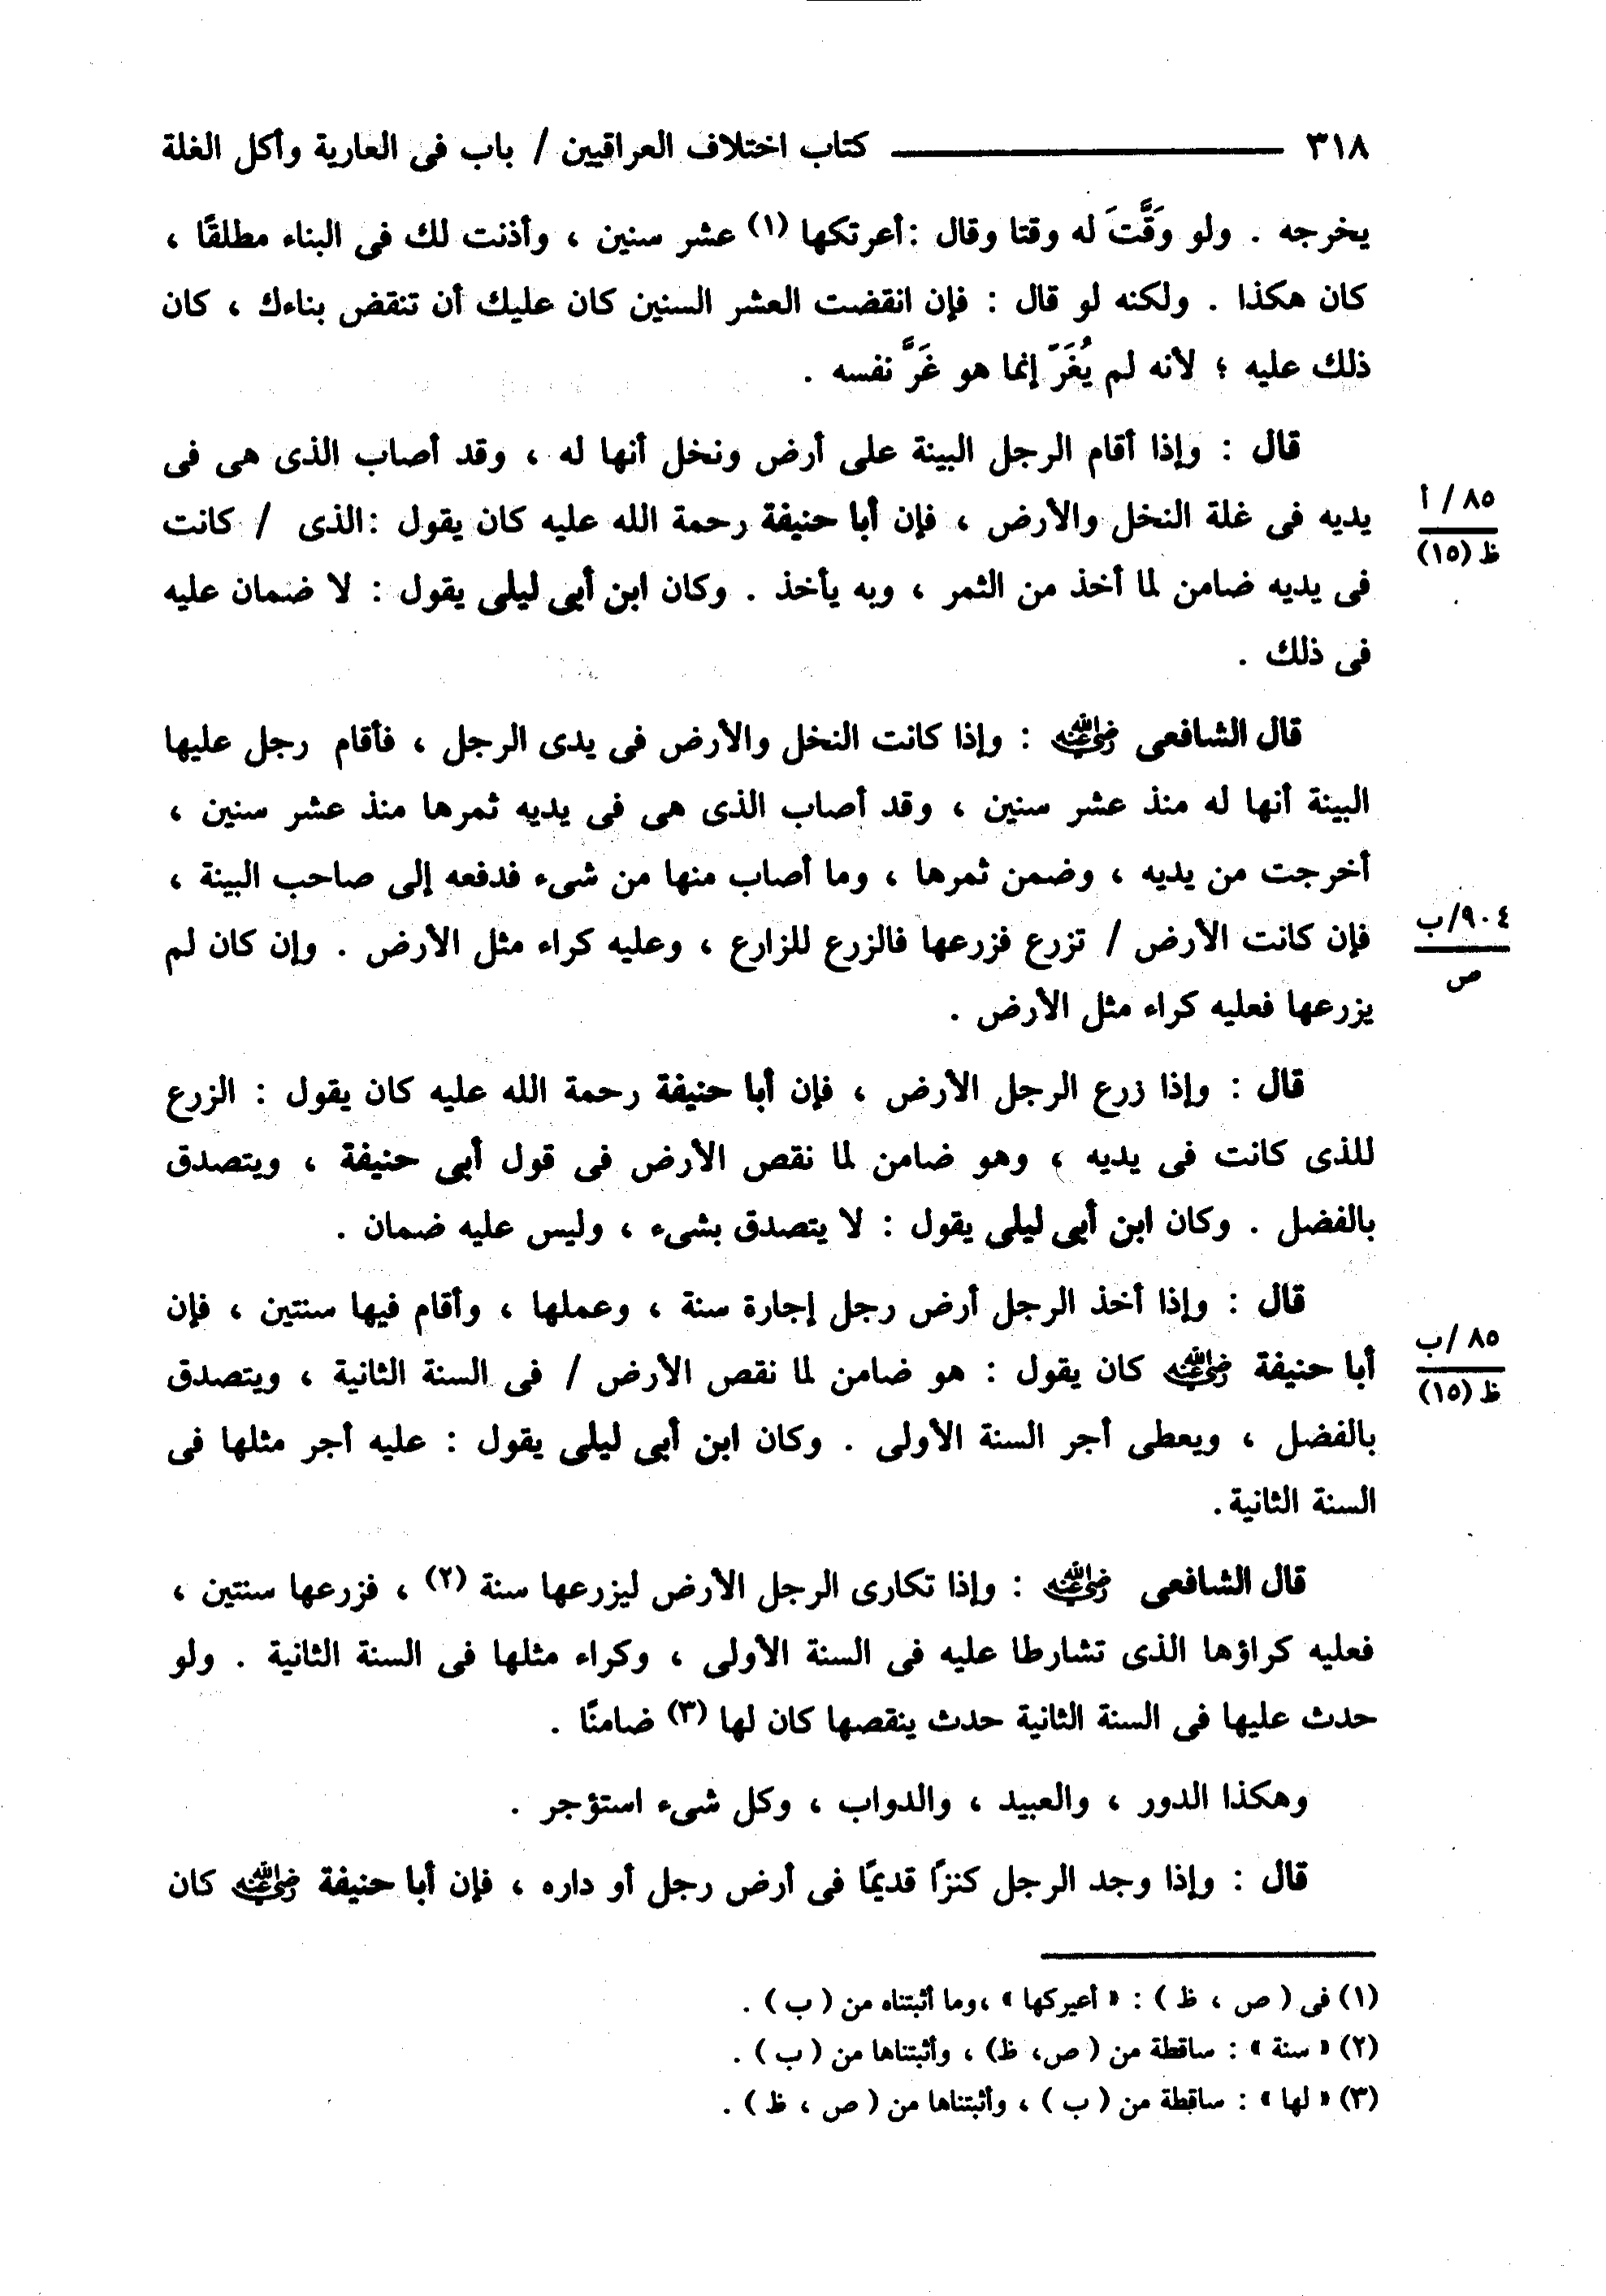 ٣١٨ ــــــــــــــــ كتاب اختلاف العراقيين / باب فى العارية وأكل الغلة
يخرجه . ولو وَقَّتَ له وقتا وقال :أعرتكها (١) عشر سنين ، وأذنت لك فى البناء مطلقًا ،
كان هكذا . ولكنه لو قال : فإن انقضت العشر السنين كان عليك أن تنقض بناءك ، كان
ذلك عليه ؛ لأنه لم يُغَرَّ إنما هو غَرَّ نفسه .
قال : وإذا أقام الرجل البينة على أرض ونخل أنها له ، وقد أصاب الذى هى فى
٨٥ / أ
يديه فى غلة النخل والأرض ، فإن أبا حنيفة رحمة الله عليه كان يقول :الذى / كانت
ظ (١٥)
فى يديه ضامن لما أخذ من الثمر ، وبه يأخذ . وكان ابن أبى ليلى يقول : لا ضمان عليه
فى ذلك .
قال الشافعى رضي الله عنه : وإذا كانت النخل والأرض فى يدى الرجل ، فأقام رجل عليها
البينة أنها له منذ عشر سنين ، وقد أصاب الذى هى فى يديه ثمرها منذ عشر سنين ،
أخرجت من يديه ، وضمن ثمرها ، وما أصاب منها من شىء فدفعه إلى صاحب البينة ،
٩٠٤/ب
فإن كانت الأرض / تزرع فزرعها فالزرع للزارع ، وعليه كراء مثل الأرض . وإن كان لم
ص
يزرعها فعليه كراء مثل الأرض .
قال : وإذا زرع الرجل الأرض ، فإن أبا حنيفة رحمة الله عليه كان يقول : الزرع
للذى كانت فى يديه ، وهو ضامن لما نقص الأرض فى قول أبى حنيفة ، ويتصدق
بالفضل . وكان ابن أبى ليلى يقول : لا يتصدق بشىء ، وليس عليه ضمان .
قال : وإذا أخذ الرجل أرض رجل إجارة سنة ، وعملها ، وأقام فيها سنتين ، فإن
٨٥ /ب
أبا حنيفة رضي الله عنه كان يقول : هو ضامن لما نقص الأرض / فى السنة الثانية ، ويتصدق
ظ (١٥)
بالفضل ، ويعطى أجر السنة الأولى . وكان ابن أبى ليلى يقول : عليه أجر مثلها فى
السنة الثانية.
قال الشافعى رضي الله عنه : وإذا تكارى الرجل الأرض ليزرعها سنة (٢) ، فزرعها سنتين ،
فعليه كراؤها الذى تشارطا عليه فى السنة الأولى ، وكراء مثلها فى السنة الثانية . ولو
حدث عليها فى السنة الثانية حدث ينقصها كان لها (٣) ضامنًا .
وهكذا الدور ، والعبيد ، والدواب ، وكل شىء استؤجر .
قال : وإذا وجد الرجل كنزًا قديمًا فى أرض رجل أو داره ، فإن أبا حنيفة رضي الله عنه كان
(١) فى ( ص ، ظ ) : « أعيركها » ،وما أثبتناه من ( ب ) .
(٢) « سنة » : ساقطة من ( ص، ظ) ، وأثبتناها من ( ب ) .
(٣) « لها » : ساقطة من ( ب ) ، وأثبتناها من ( ص ، ظ ) .